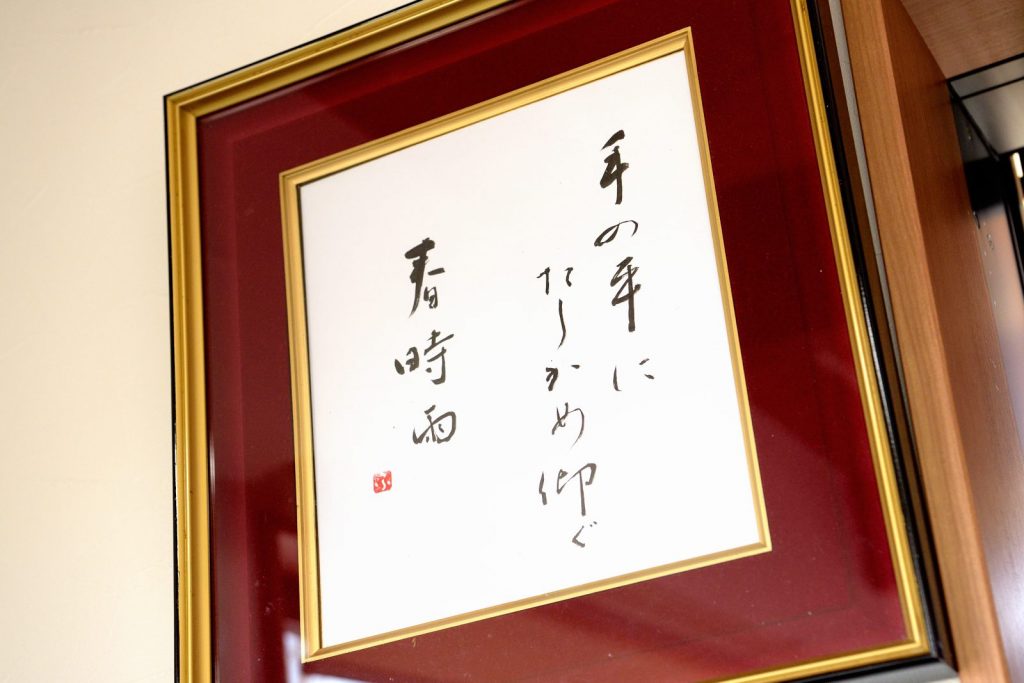 手の平に
たしかめ仰ぐ
春時雨